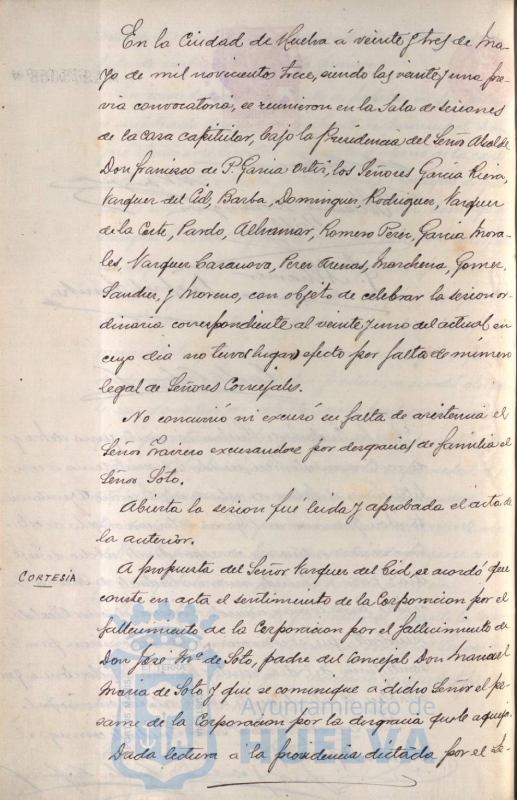 En la Ciudad de Huelva á veinte y tres de Ma-
yo de mil novecientos trece, siendo las veinte y una pre-
via convocatoria, se reunieron en la Sala de sesiones
de la casa capitular, bajo la Presidencia del Señor Alcalde
Don Francisco de P. Garcia Ortiz, los Señores Garcia Riera,
Vazquez del Cid, Barba, Dominguez, Rodriguez, Vazquez
de la Corte, Pardo, Alhamar, Romero Perez, Garcia Mora-
les, Vazquez Casanova, Perez Arenas, Marchena, Gomez,
Sanchez, y Moreno, con objeto de celebrar la sesion or-
dinaria correspondiente al veinte y uno del actual en
cuyo dia no tuvo (lugar) efecto por falta de número
legal de Señores Concejales.
No concurrió ni escusó su falta de asistencia el
Señor excusandose por desgracias de familia el
Señor Soto.
Abierta la sesion fué leida y aprobada el acta de
la anterior.
CORTESÍA
A propuesta del Señor Vazquez del Cid, se acordó que
conste en acta el sentimiento de la Corporacion por el
fallecimiento de la Corporacion por el fallecimiento de
Don José Mª de Soto, padre del concejal Don Manuel
Maria de Soto y que se comunique á dicho Señor el pe-
same de la Corporacion por la desgracia que le aqueja.
Dada lectura á la providencia dictada por el Se-
Ayuntamiento de
HUELVA